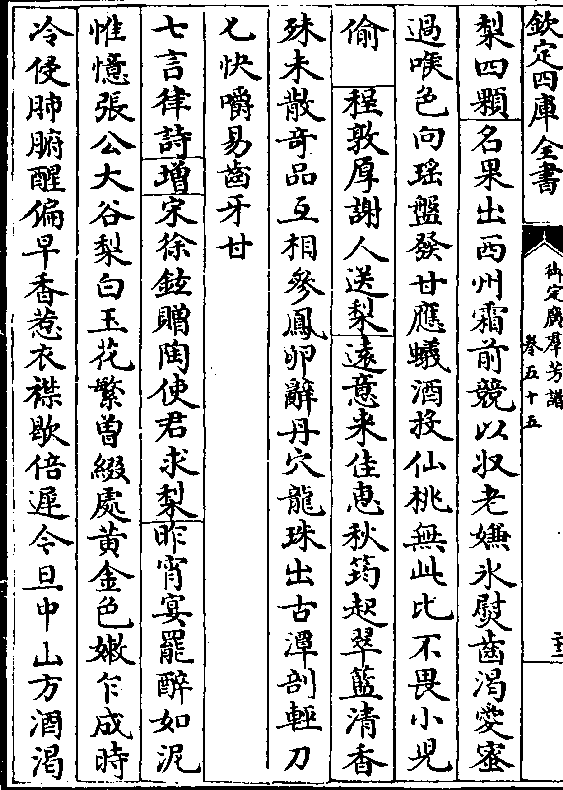 欽定四庫全書
御定廣羣芳譜
卷五十五
梨四顆名果出西州霜前競以收老嫌氷熨齒渴愛蜜
過喉色向瑶盤發甘應蟻酒投仙桃無此比不畏小兒
偷 程敦厚謝人送梨遠意来佳惠秋筠起翠籃清香
殊未散奇品互相參鳳卵辭丹穴龍珠出古潭剖輕刀
匕快嚼易齒牙甘
七言律詩增宋徐鉉贈陶使君求梨昨宵宴罷醉如泥
惟憶張公大谷梨白玉花繁曽綴處黄金色嫩乍成時
冷侵肺腑醒偏早香惹衣襟歇倍遲今旦中山方酒渴